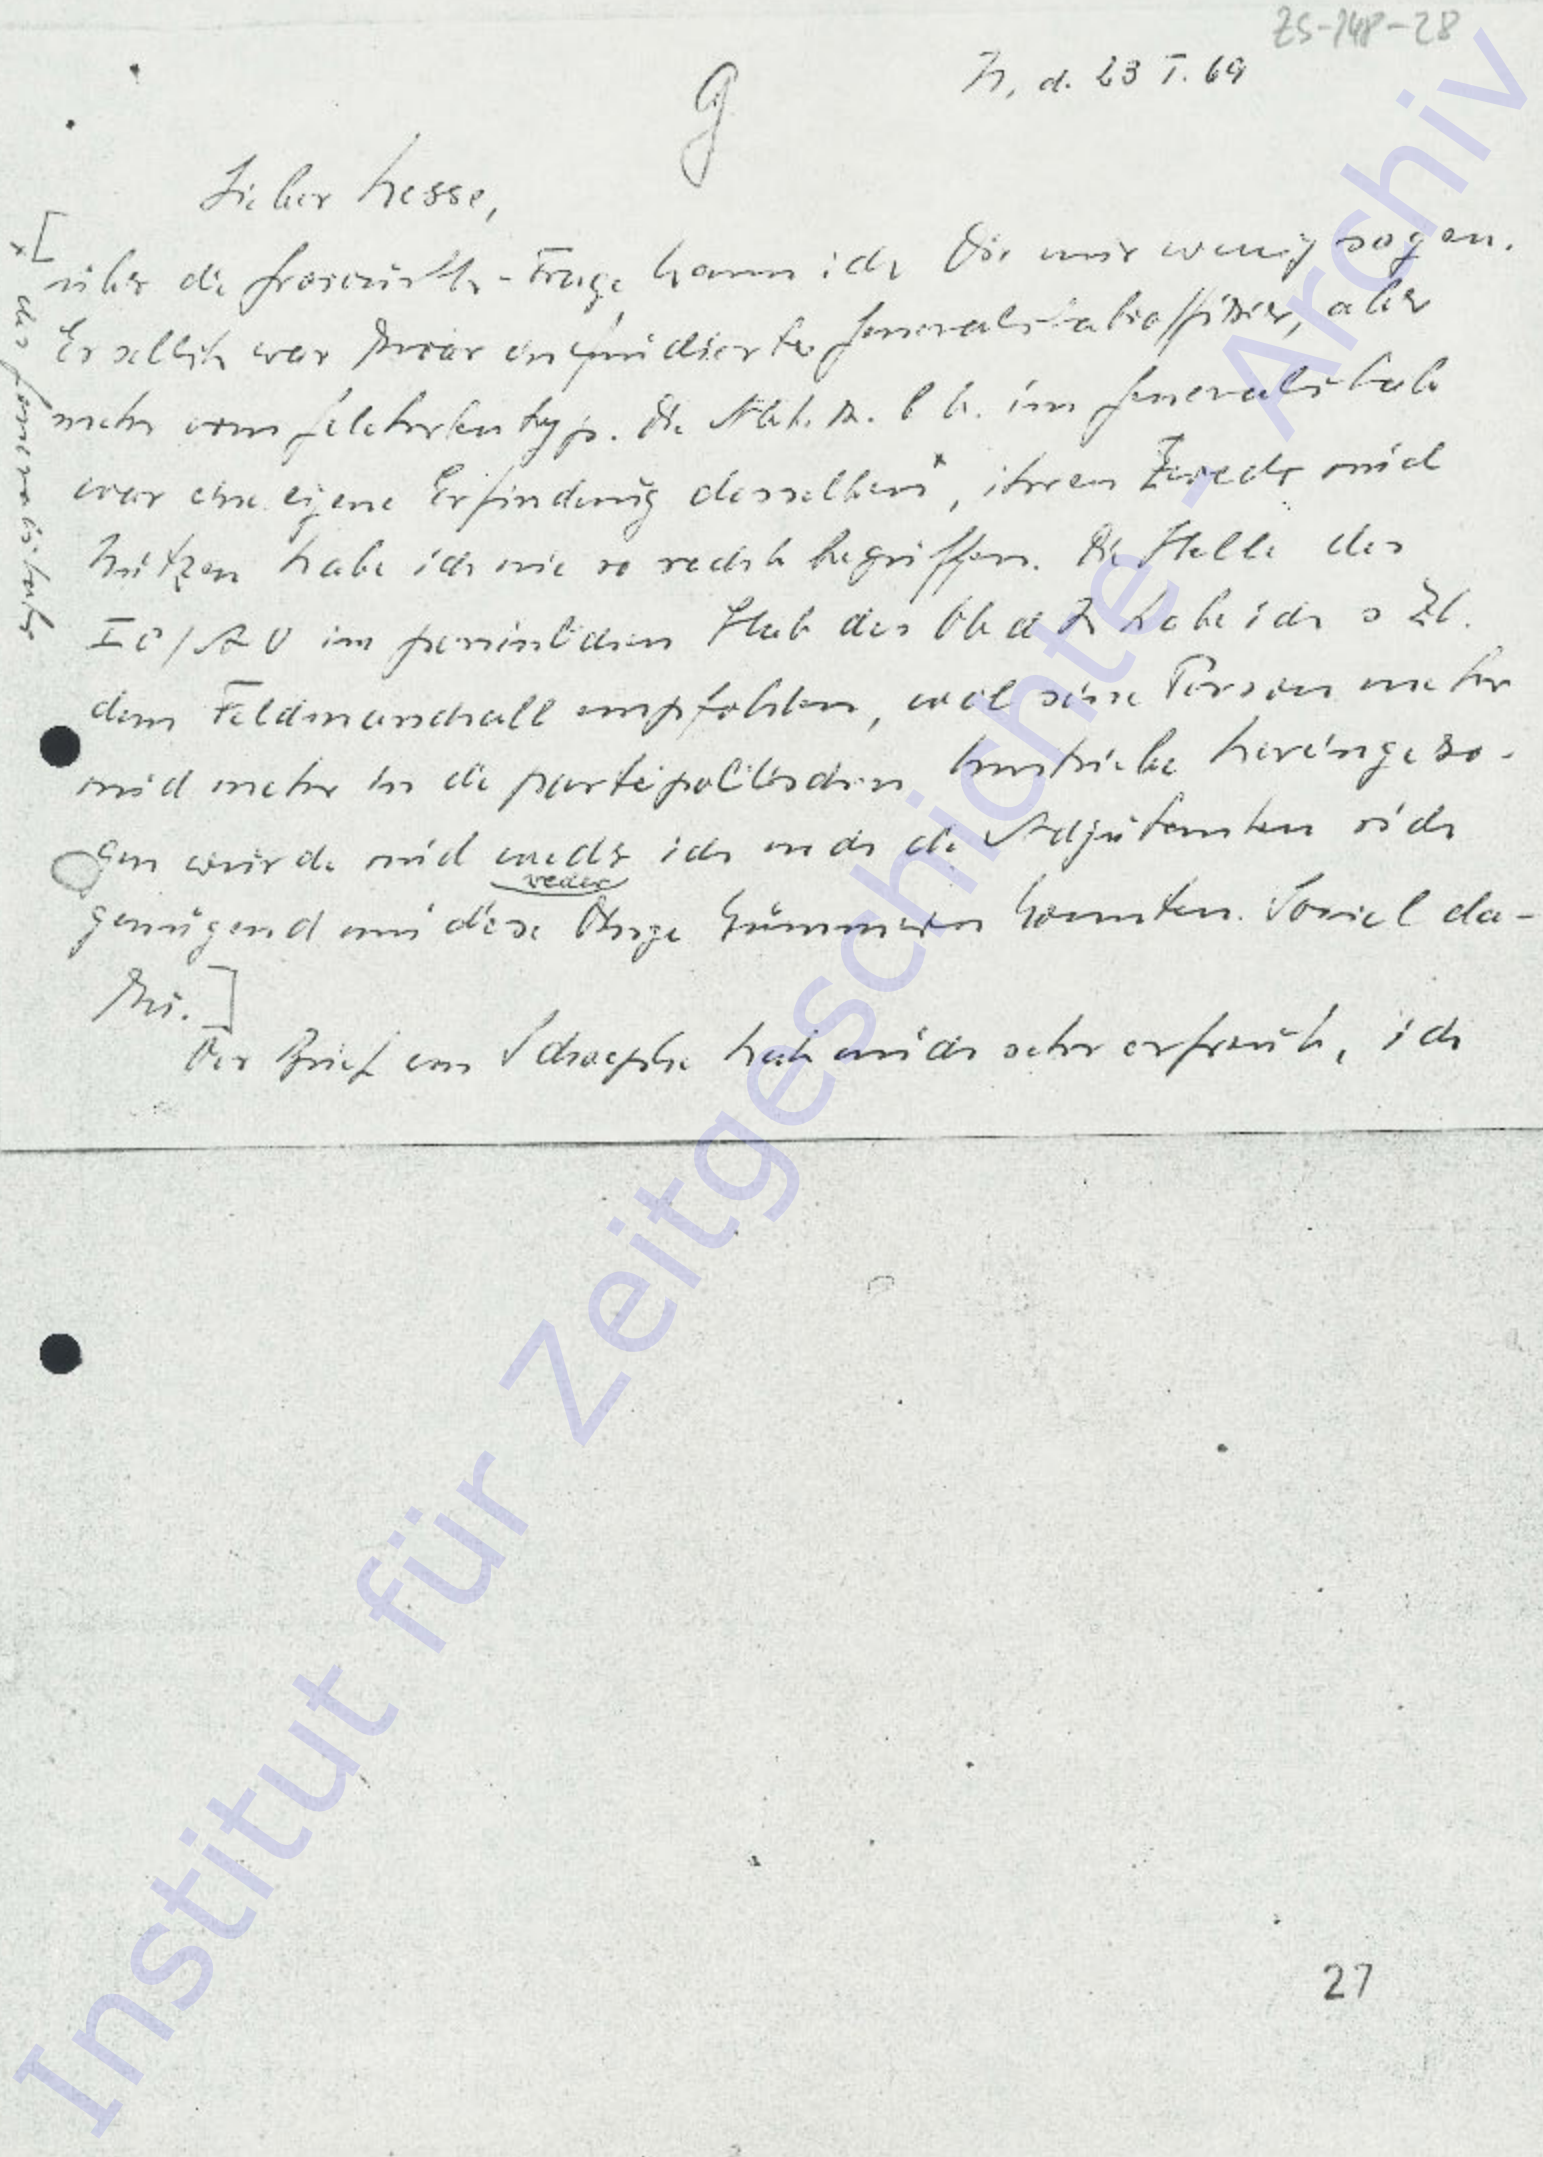 ZS-148-28
H, d. 23 I. 69
G
Lieber Hesse,
über die Groscurth-Frage kann ich Dir nur wenig sagen.
Er selbst war zwar ein fundierter Generalstabsoffizier, aber
mehr vom Gelehrtentyp. Die Abt. z. b V. im Generalstab
war eine eigene Erfindung desselben*, ihren Zweck und
Nutzen habe ich nie so recht begriffen. Die Stelle des
IC/AO im persönlichen Stab des ObdH habe ich s Zt.
dem Feldmarschall empfohlen, weil seine Person mehr
und mehr in die parteipolitischen Umtriebe hereingezo-
gen wurde und weder ich noch die Adjutanten sich
weder
genügend um diese Dinge kümmern konnten. Soviel da-
zu.]
Der Brief von Schaepke hat mich sehr erfreut, ich
* des Generalstabs
27
Institut für Zeitgeschichte - Archiv